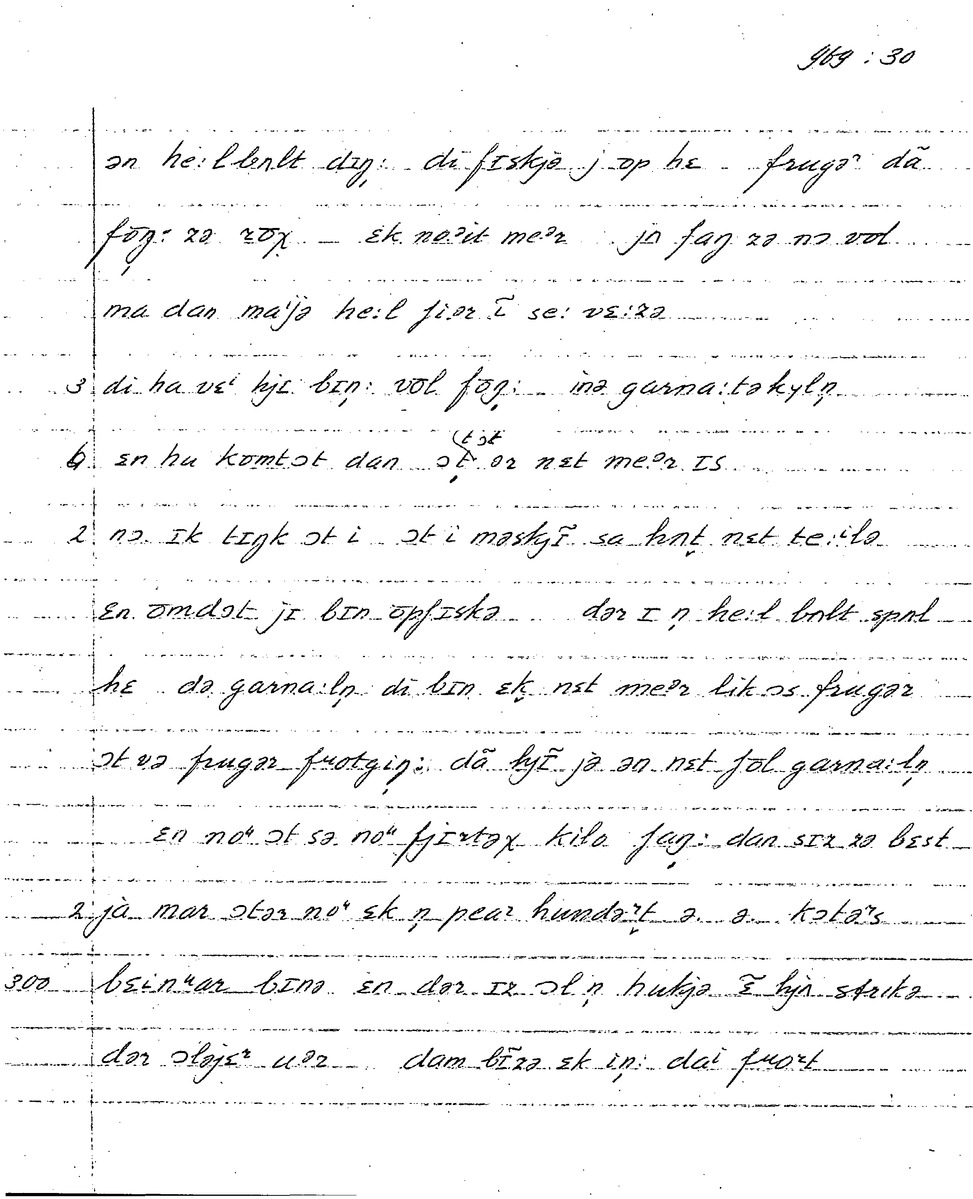 969 : 30
ən he:l bʌlt dɪŋ̩: di fɪskjə j op hɛ frugəʳ dã
fōŋ̩: zə zōχ — ɛk noəit meər jʌ faŋ zə nɔ vol
ma dan maⁱjə he:l fiər ĩ se: vɛ:zə
3 di ha vɛⁱ hjɪ bɪn̩: vol fōŋ̩: inə garna:təkylņ
6 ɛn hu komtɔt dan ɔţ (tɔt ər nɛt meər ɪs
2 nɔ ɪk tɪŋk ɔt i ɔt i məskjĩ sa hʌţ nɛt te:ⁱlə
ɛn omdɔt jɪ bɪn opfɪskə dər ɪ ņ he:l bʌlt spʌl
hɛ də garna:lņ di bɪn ɛk nɛt meər lik ɔs frugər
ɔt və frugər fuotgiŋ̩: dã kjĩ jə ən nɛt fol garna:lņ
ɛn noᵘ ɔt sə noᵘ fjɪrtəχ kilo faŋ̩: dan sɪz zə bɛst
2 jà mar ɔtər noᵘ ɛk ņ pear hundəʳţ ə ə kɔtəʳs
300 bɛinᵘar bɪnə ɛn dər ɪz ɔl ņ hukjə ɛ̃ kjʌ strikə
dər ɔləjɛʳ uər dam bĩzə ɛk iŋ̩: daⁱ fuoʳt